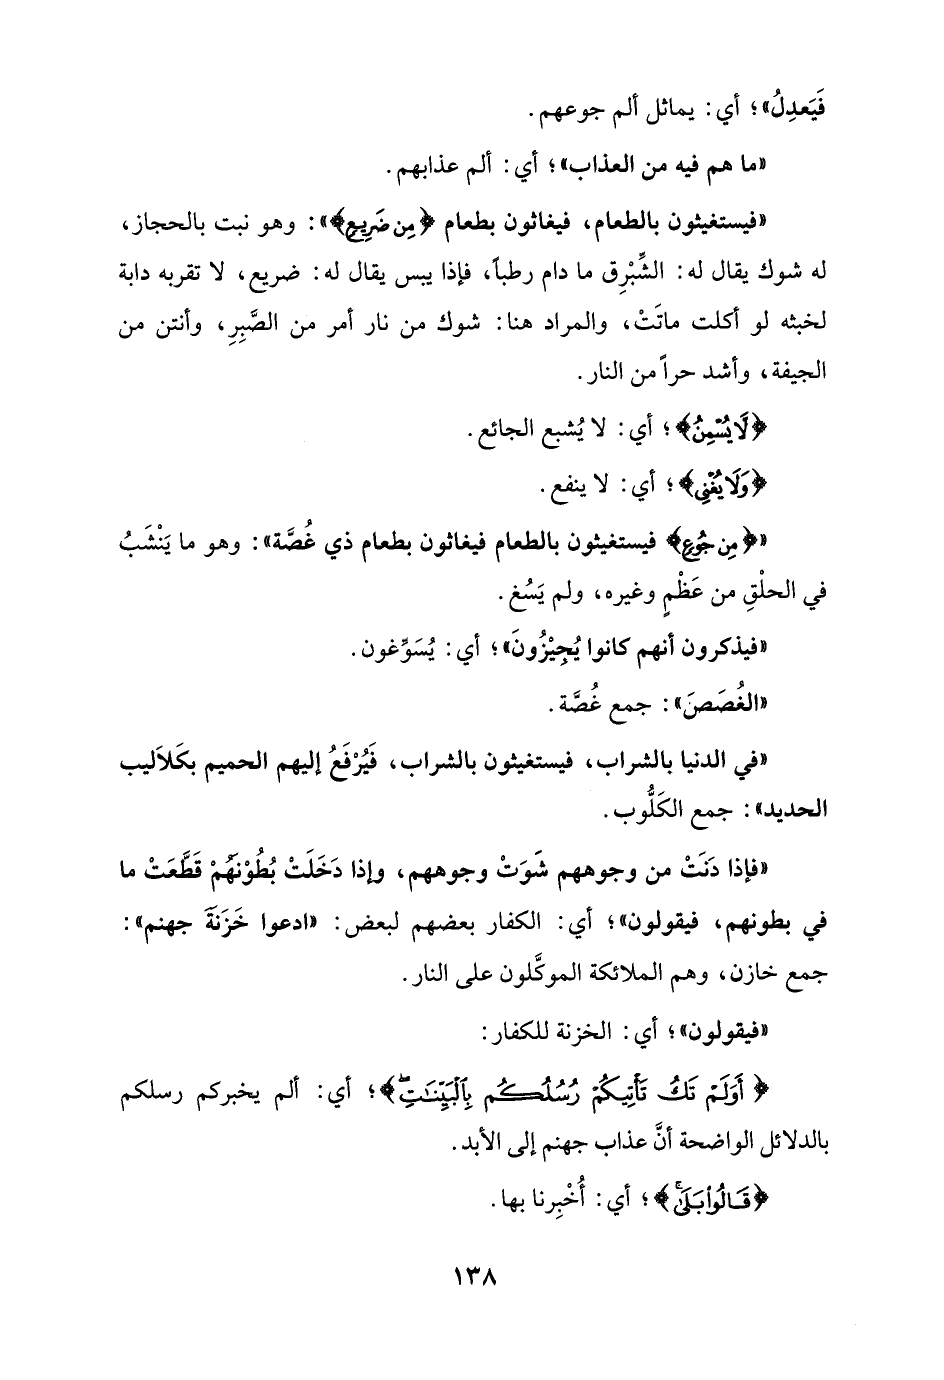 فَيَعدِلُ»؛ أي: يماثل ألم جوعهم.
«ما هم فيه من العذاب»؛ أي: ألم عذابهم.
«فيستغيثون بالطعام، فيغاثون بطعام ﴿مِن ضَرِيعٍ﴾»: وهو نبت بالحجاز،
له شوك يقال له: الشِّبْرِق ما دام رطباً، فإذا يبس يقال له: ضريع، لا تقربه دابة
لخبثه لو أكلت ماتَتْ، والمراد هنا: شوك من نار أمر من الصَّبِرِ، وأنتن من
الجيفة، وأشد حراً من النار.
﴿لَا يُسْمِنُ﴾؛ أي: لا يُشبع الجائع.
﴿وَلَا يُغْنِي﴾؛ أي: لا ينفع.
«﴿مِن جُوعٍ﴾ فيستغيثون بالطعام فيغاثون بطعام ذي غُصَّة»: وهو ما يَنْشَبُ
في الحلْقِ من عَظْمٍ وغيره، ولم يَسُغ.
«فيذكرون أنهم كانوا يُجِيْزُونَ»؛ أي: يُسَوِّغون.
«الغُصَصَ»: جمع غُصَّة.
«في الدنيا بالشراب، فيستغيثون بالشراب، فَيُرْفَعُ إليهم الحميم بكَلاَليب
الحديد»: جمع الكَلُّوب.
«فإذا دَنَتْ من وجوههم شَوَتْ وجوههم، وإذا دَخَلَتْ بُطُوْنَهُمْ قَطَّعَتْ ما
في بطونهم، فيقولون»؛ أي: الكفار بعضهم لبعض: «ادعوا خَزَنَةَ جهنم»:
جمع خازن، وهم الملائكة الموكَّلون على النار.
«فيقولون»؛ أي: الخزنة للكفار:
﴿أَوَلَمْ تَكُ تَأْتِيكُمْ رُسُلُكُم بِالْبَيِّنَٰتِ﴾؛ أي: ألم يخبركم رسلكم
بالدلائل الواضحة أنَّ عذاب جهنم إلى الأبد.
﴿قَالُوا بَلَىٰ﴾؛ أي: أُخْبِرنا بها.
١٣٨